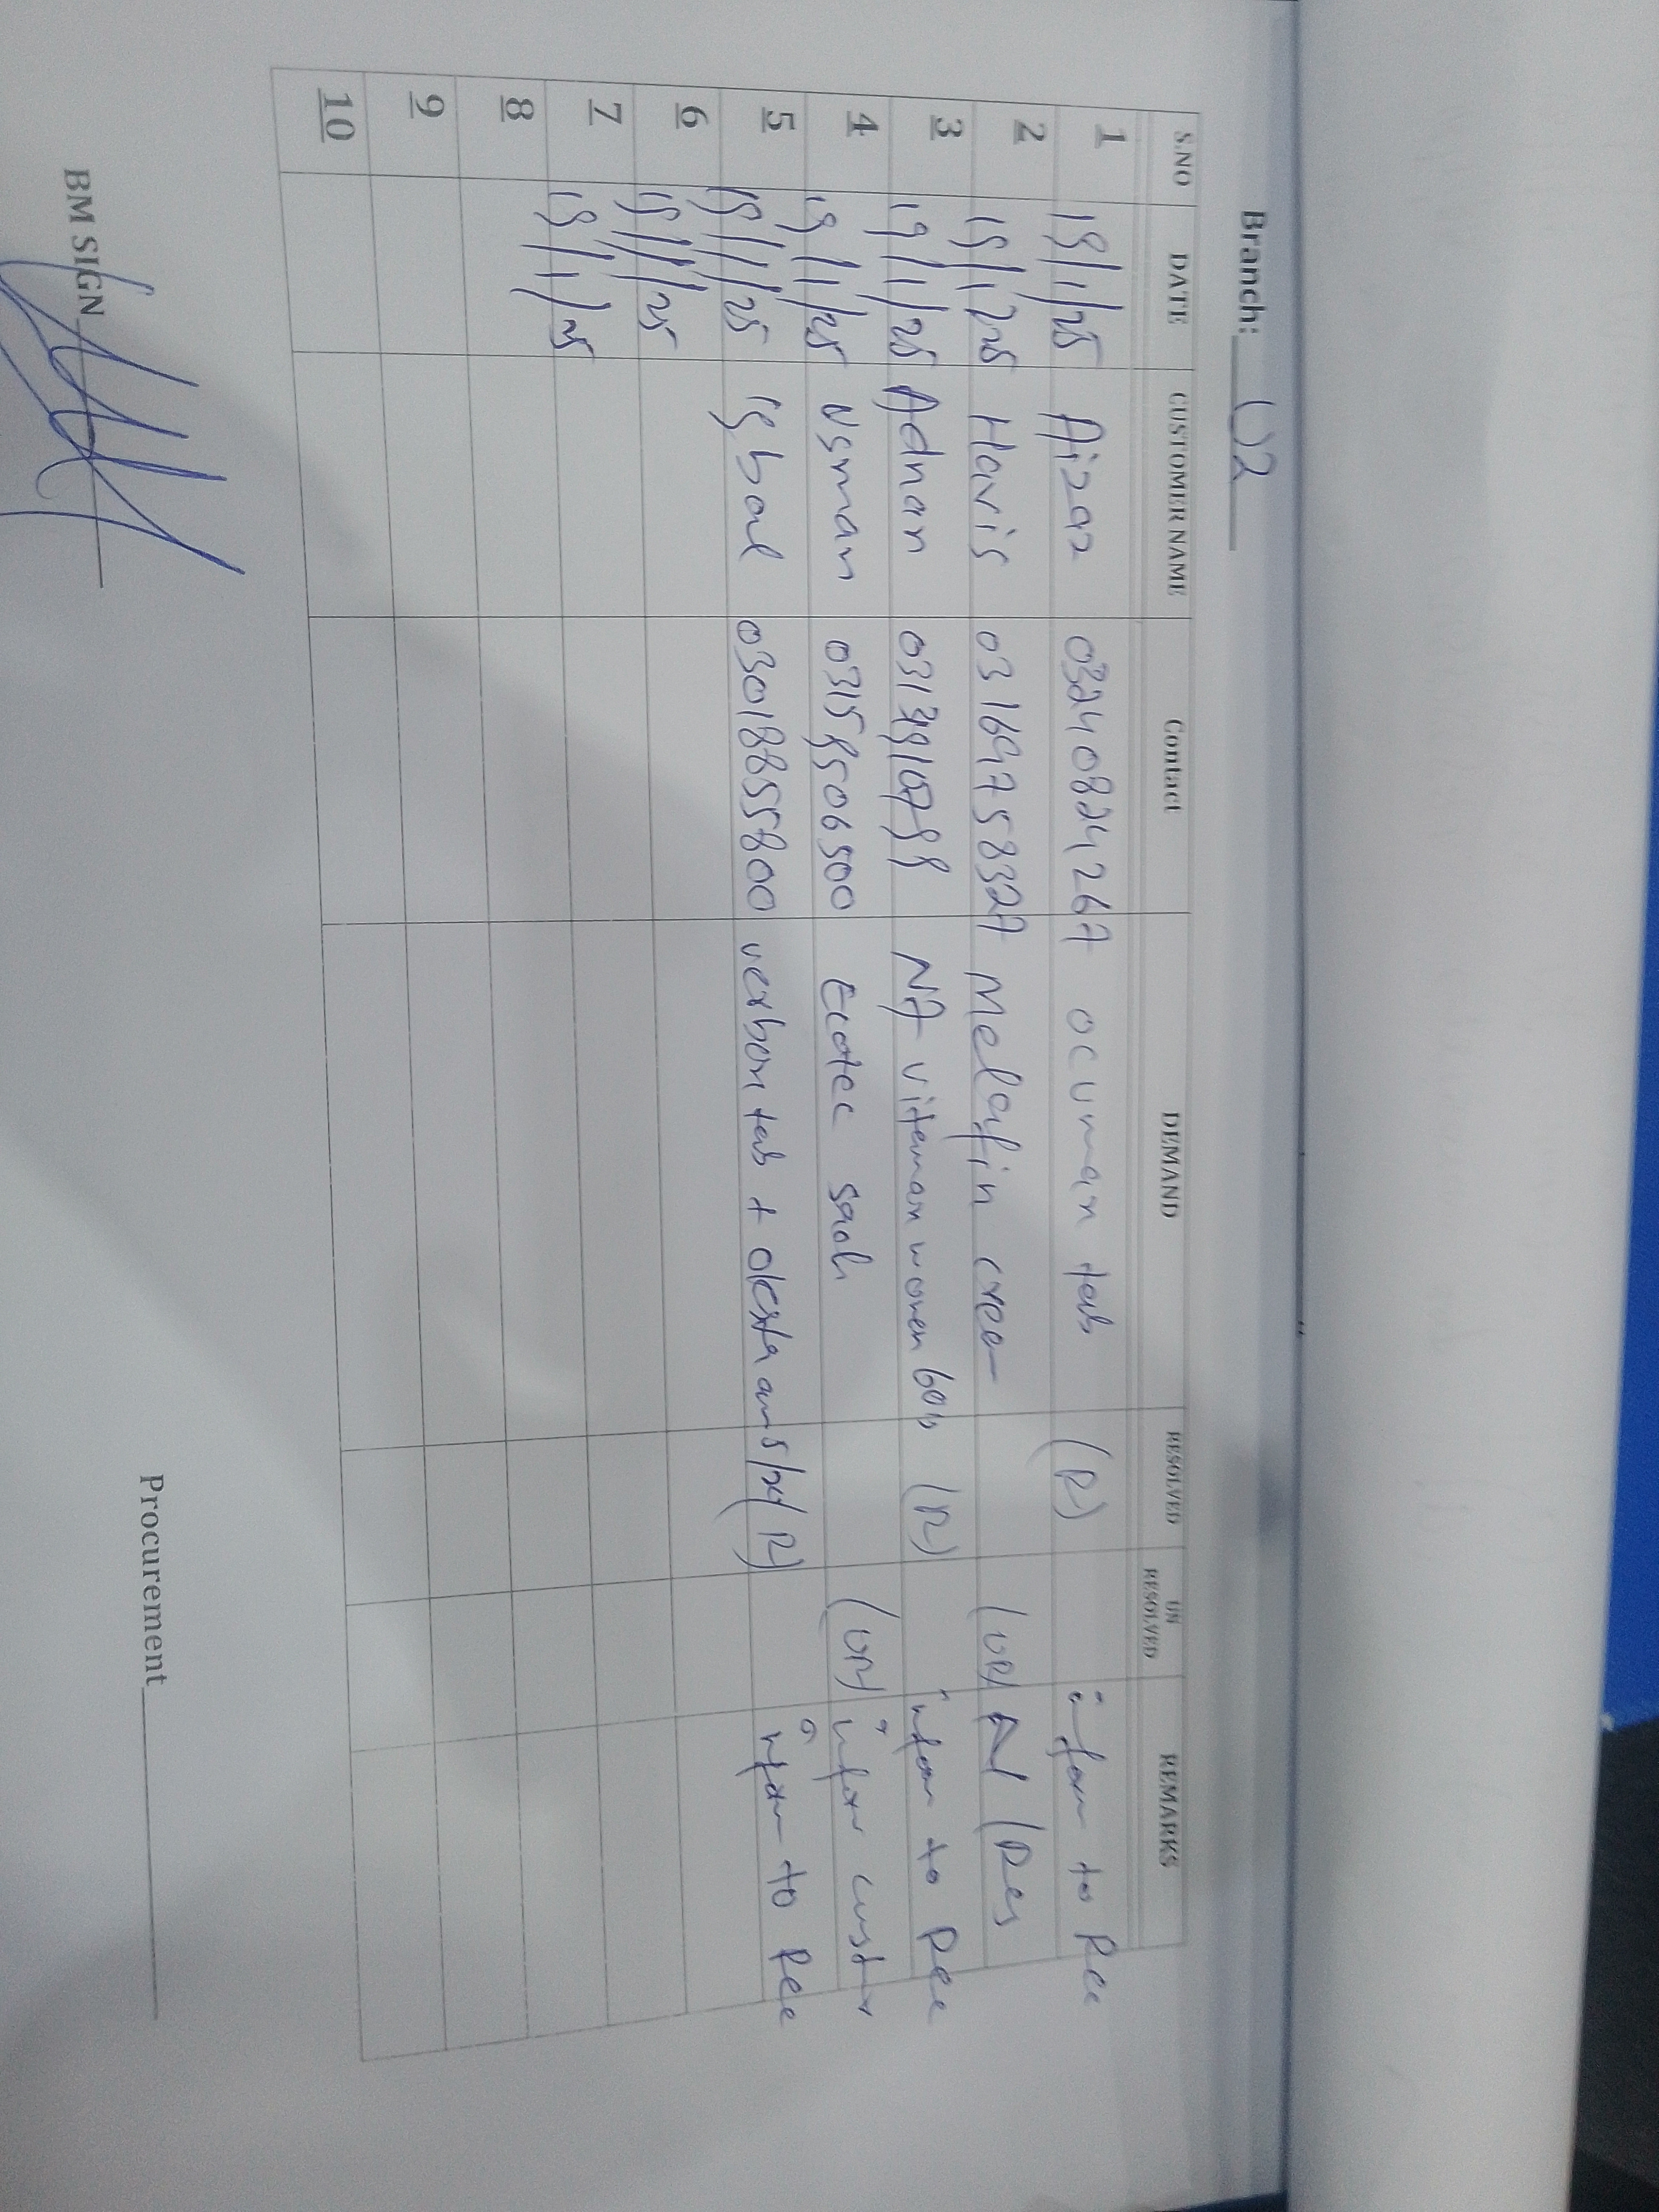 Branch: U2
S.NO DATE CUSTOMER NAME Contact DEMAND RESOLVED UN RESOLVED REMARKS
1 19/1/25 Aizaz 03240824267 ocuman tab (R) infom to Rec
2 19/1/25 Haris 03169758327 Melafin cree (UR)
3 19/1/25 Adnan N7 vitaman women 60s (R) infom to Rec
4 19/1/25 Usman 03158506500 Ecotec sach (UR) infom
5 19/1/25 Iqbal 03018855800 verbon tab + 5/24 (R) infom to Rec
6 19/1/25
7 19/1/25
8
9
10
BM SIGN Procurement